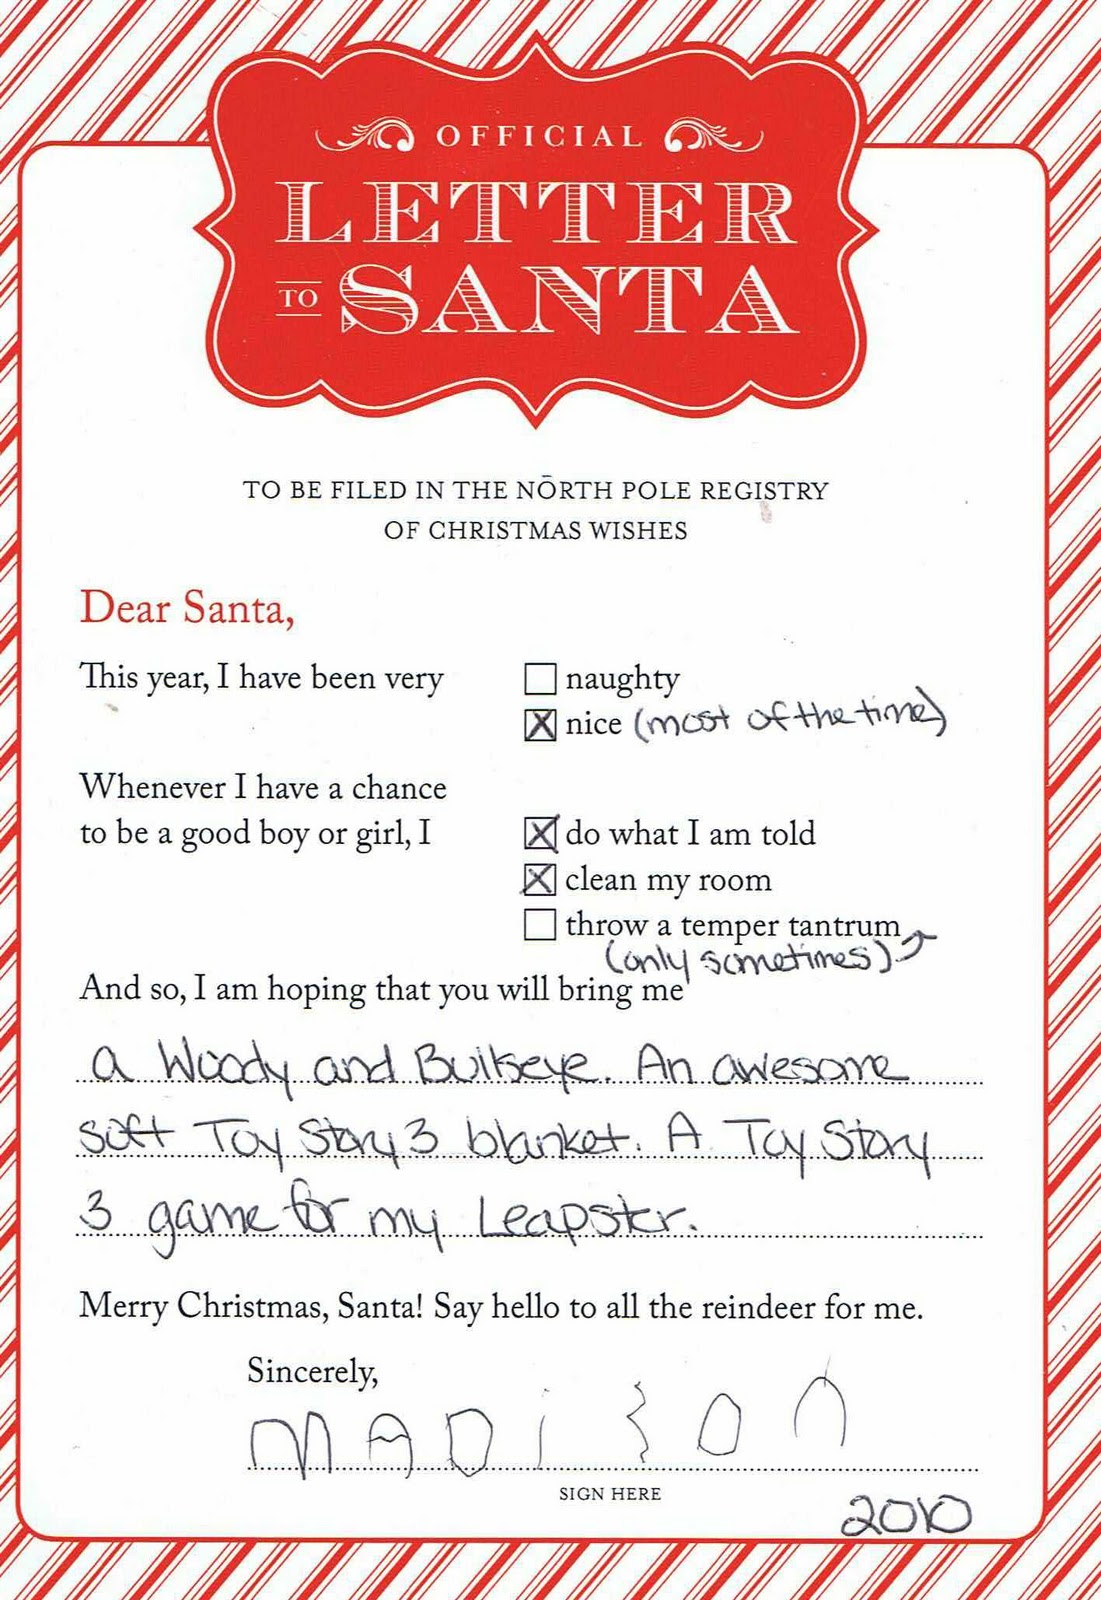 OFFICIAL
LETTER
TO SANTA
TO BE FILED IN THE NORTH POLE REGISTRY
OF CHRISTMAS WISHES
Dear Santa,
This year, I have been very
☐ naughty
☒ nice (most of the time)
Whenever I have a chance
to be a good boy or girl, I
☒ do what I am told
☒ clean my room
☐ throw a temper tantrum
(only sometimes)
And so, I am hoping that you will bring me
a Woody and Bullseye. An awesome
soft Toy Story 3 blanket. A Toy Story
3 game for my Leapster.
Merry Christmas, Santa! Say hello to all the reindeer for me.
Sincerely,
MADISON
SIGN HERE
2010